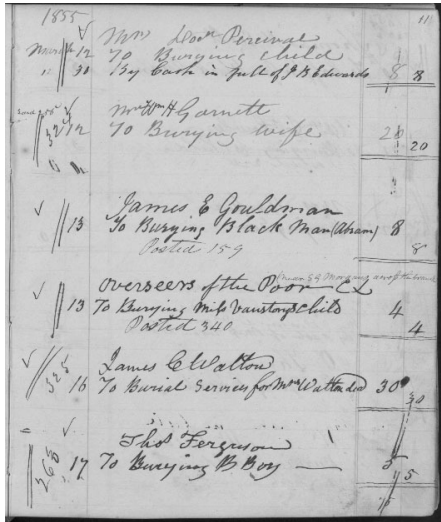 1855
11
Mrs Percival
March 12 To Burying child
" 30 By Cash in full of J B Edwards 8 8
Mr Wm H Garnett
12 To Burying wife 20
20
James E Gouldman
13 To Burying Black Man (Abram) 8
Posted 159 8
Overseers of the Poor
13 To Burying Miss child 4
Posted 340 4
James C Walton
325 16 To Burial Services for Mrs Walton 30
30
Thos Ferguson
268 17 To Burying B Boy — 5
5